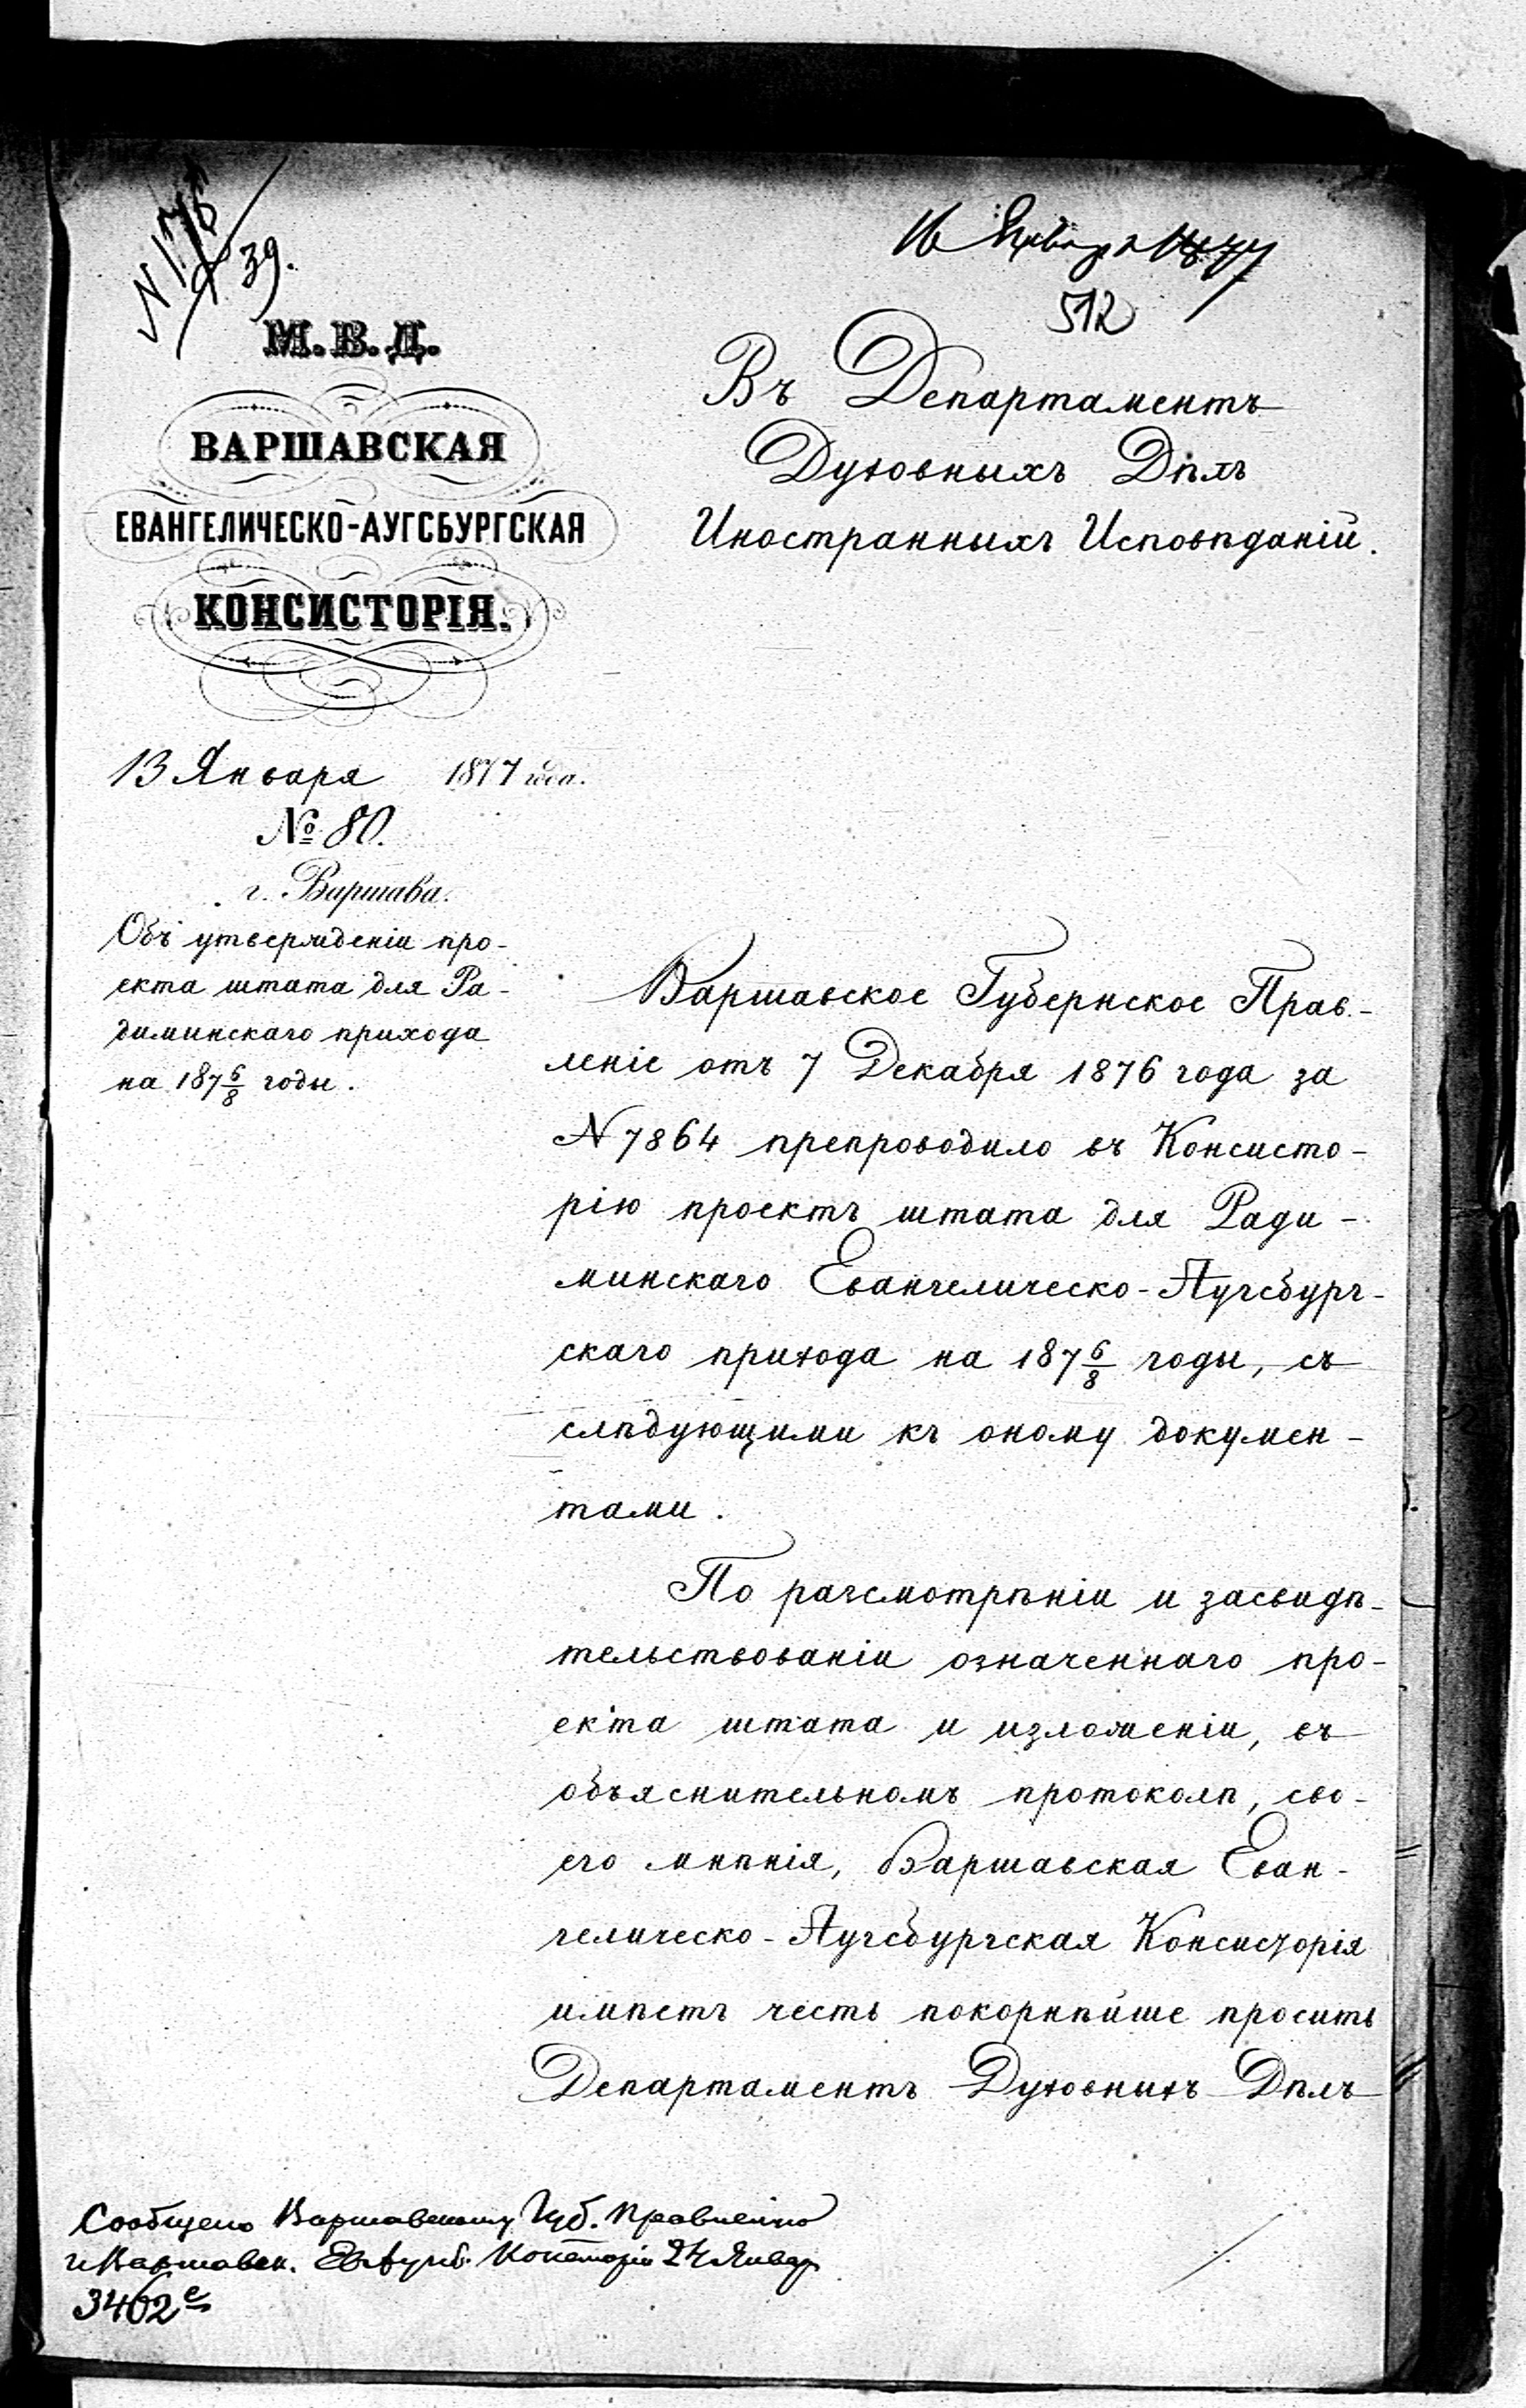 39.
16 Января 1877
512
М.В.Д.
ВАРШАВСКАЯ
ЕВАНГЕЛИЧЕСКО-АУГСБУРГСКАЯ
КОНСИСТОРІЯ.
13 Января 1877 года.
№ 80.
г. Варшава.
Объ утвержденіи про-
екта штата для Ра-
диминскаго прихода
на 187 6/8 годы.
Въ Департаментъ
Духовныхъ Дѣлъ
Иностранныхъ Исповѣданій.
Варшавское Губернское Прав-
леніе отъ 7 Декабря 1876 года за
N 7864 препроводило въ Консисто-
рію проектъ штата для Ради-
минскаго Евангелическо-Аугсбург-
скаго прихода на 187 6/8 годы, съ
слѣдующими къ оному докумен-
тами.
По разсмотрѣніи и засвидѣ-
тельствованіи означеннаго про-
екта штата и изложеніи, въ
объяснительномъ протоколѣ, сво-
его мнѣнія, Варшавская Еван-
гелическо-Аугсбургская Консисторія
имѣетъ честь покорнѣйше просить
Департаментъ Духовныхъ Дѣлъ
Сообщено Варшавскому Губ. Правленію
и Варшавск. Ев. Аугсб. Консторіи 24 Январ
3402